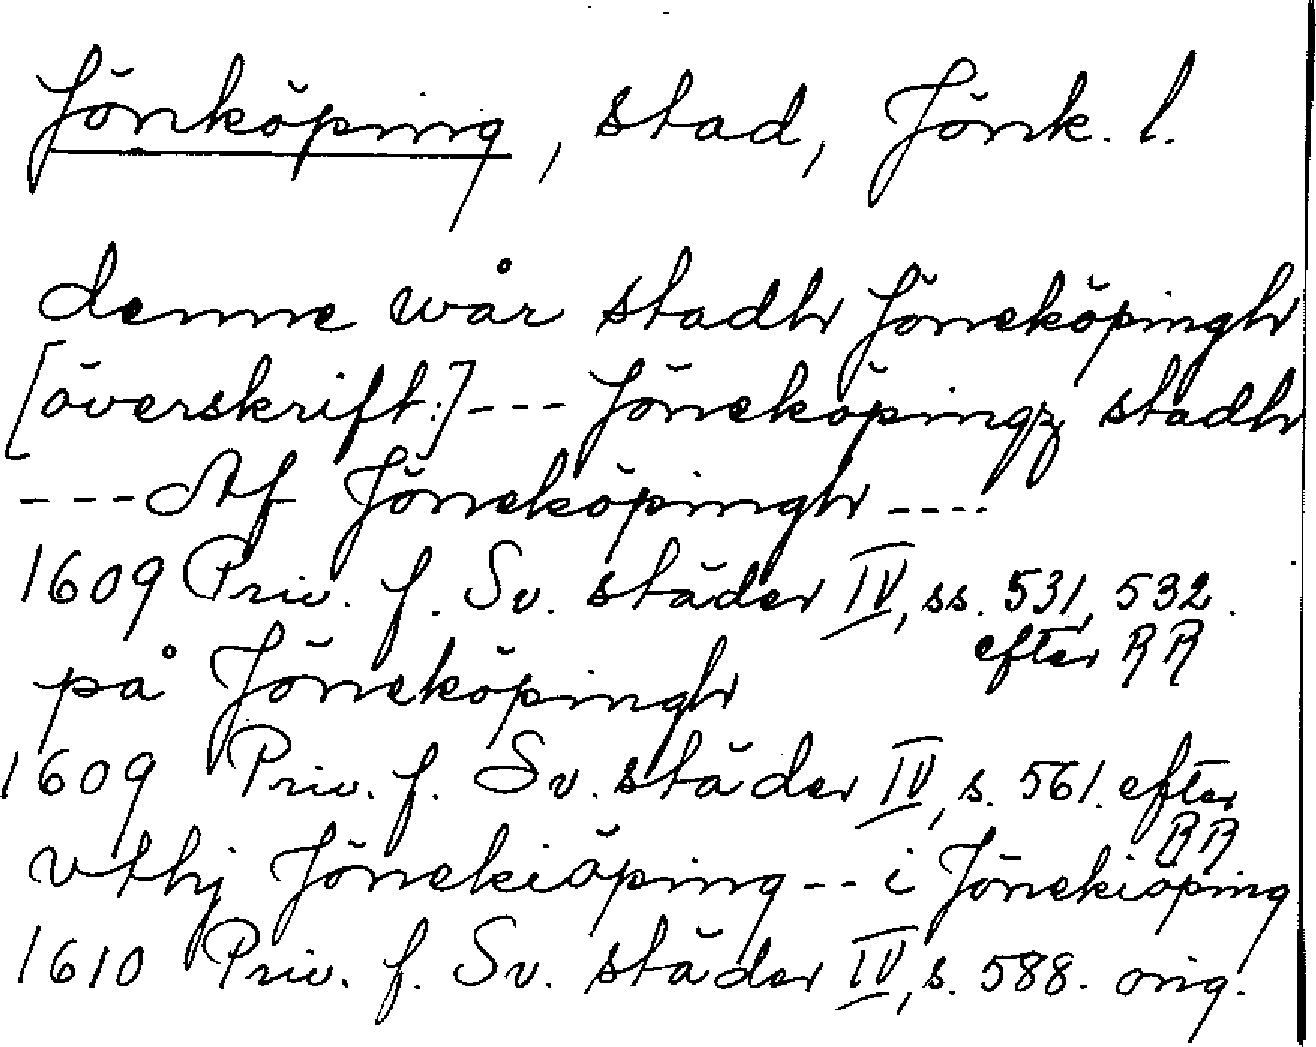 Jönköping, stad, Jönk. l.
denne wår stadh Jöneköpingh
[överskift:] --- Jöneköpingz stadh
--- Af Jöneköpingh ----
1609 Priv. f. Sv. städer IV, ss. 531, 532.
efter RR
på Jöneköpingh
1609 Priv. f. Sv. städer IV, s. 561. efter
RR
vthj Jönekiöping -- i Jönekiöping
1610 Priv. f. Sv. städer IV, s. 588. orig.